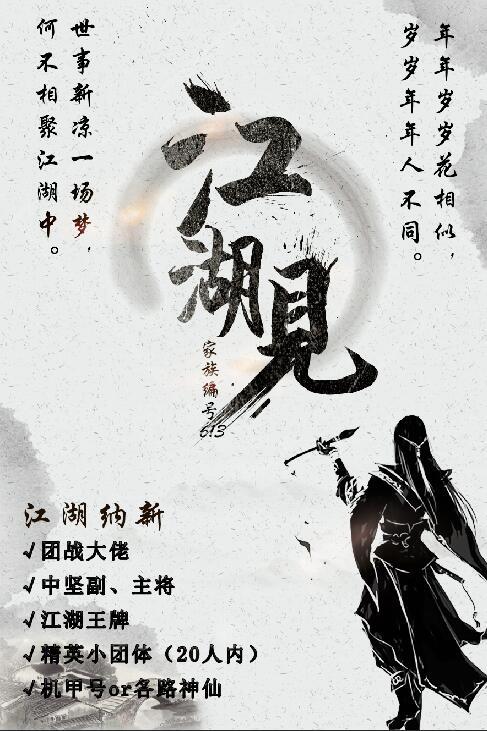 年年岁岁花相似，
岁岁年年人不同。
世事新凉一场梦，
何不相聚江湖中。
江湖見
家族编号
613
江湖纳新
√团战大佬
√中坚副、主将
√江湖王牌
√精英小团体（20人内）
√机甲号or各路神仙